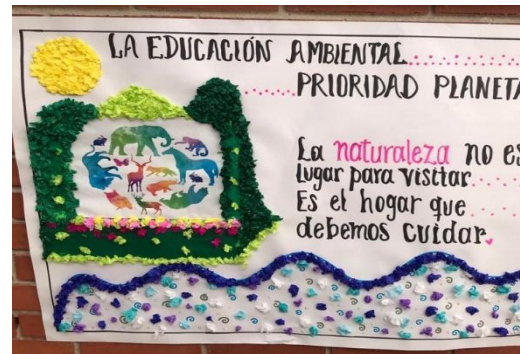 LA EDUCACIÓN AMBIENTAL..............
......PRIORIDAD PLANETA
La naturaleza no es
lugar para visitar....
Es el hogar que....
debemos cuidar.